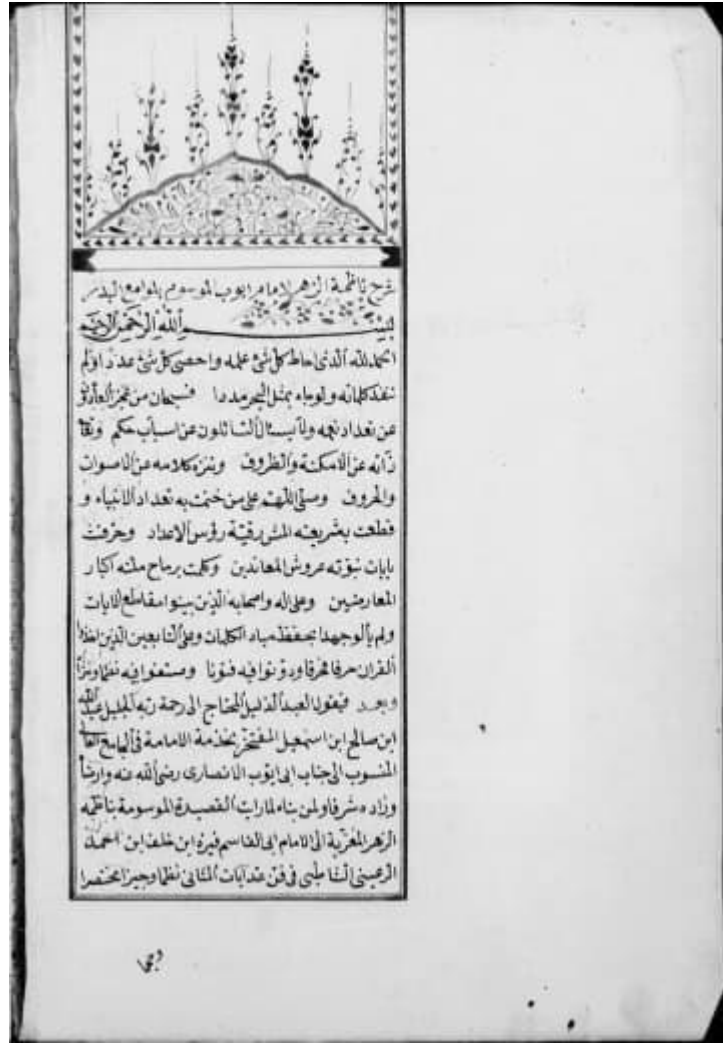 شرح ناظمة الزهر لامام ايوب الموسوم بلوامع البدر
بسم الله الرحمن الرحيم
الحمد لله الذى احاط كل شئ علمه واحصى كل شئ عددا ولم
تنفد كلماته ولو جاء بمثل البحر مددا فسبحان من عجز العادون
عن تعداد نعمه ولا يسئال السائلون عن اسباب حكمه وتعا
ذاته عن الامكنة والظروف وتنزه كلامه عن الاصوات
والحروف وصلى اللهم على من ختمت به تعداد الانبياء و
قطعت بشريعته المشرقية رؤس الاعداد وخرقت
بايات نبوته عروش المعاندين وكلمت برماح ملته اكباد
المعارضين وعلى اله واصحابه الذين بينوا مقاطع الايات
ولم يألو جهدا بحفظ مباد الكلمات وعلى التابعين الذين اخذوا
القران حرفا حرفا ودونوا فيه فنونا وصنفوا فيه نظما ونثرا
وبعد فيقول العبد الذليل المحتاج الى رحمة ربه الجليل عبد الله
ابن صالح ابن اسمعيل المفتخر بخدمة الامامة فى الجامع العالى
المنسوب الى جناب ابى ايوب الانصارى رضى الله عنه وارضا
وزاده شرفا ولمن بناه لما رات القصيدة الموسومة بناظمة
الزهر المعزية الى الامام ابى القاسم فيره ابن خلف ابن احمد
الرعينى الشاطبى فى فن عد ايات المثانى نظما وجيزا مختصرا